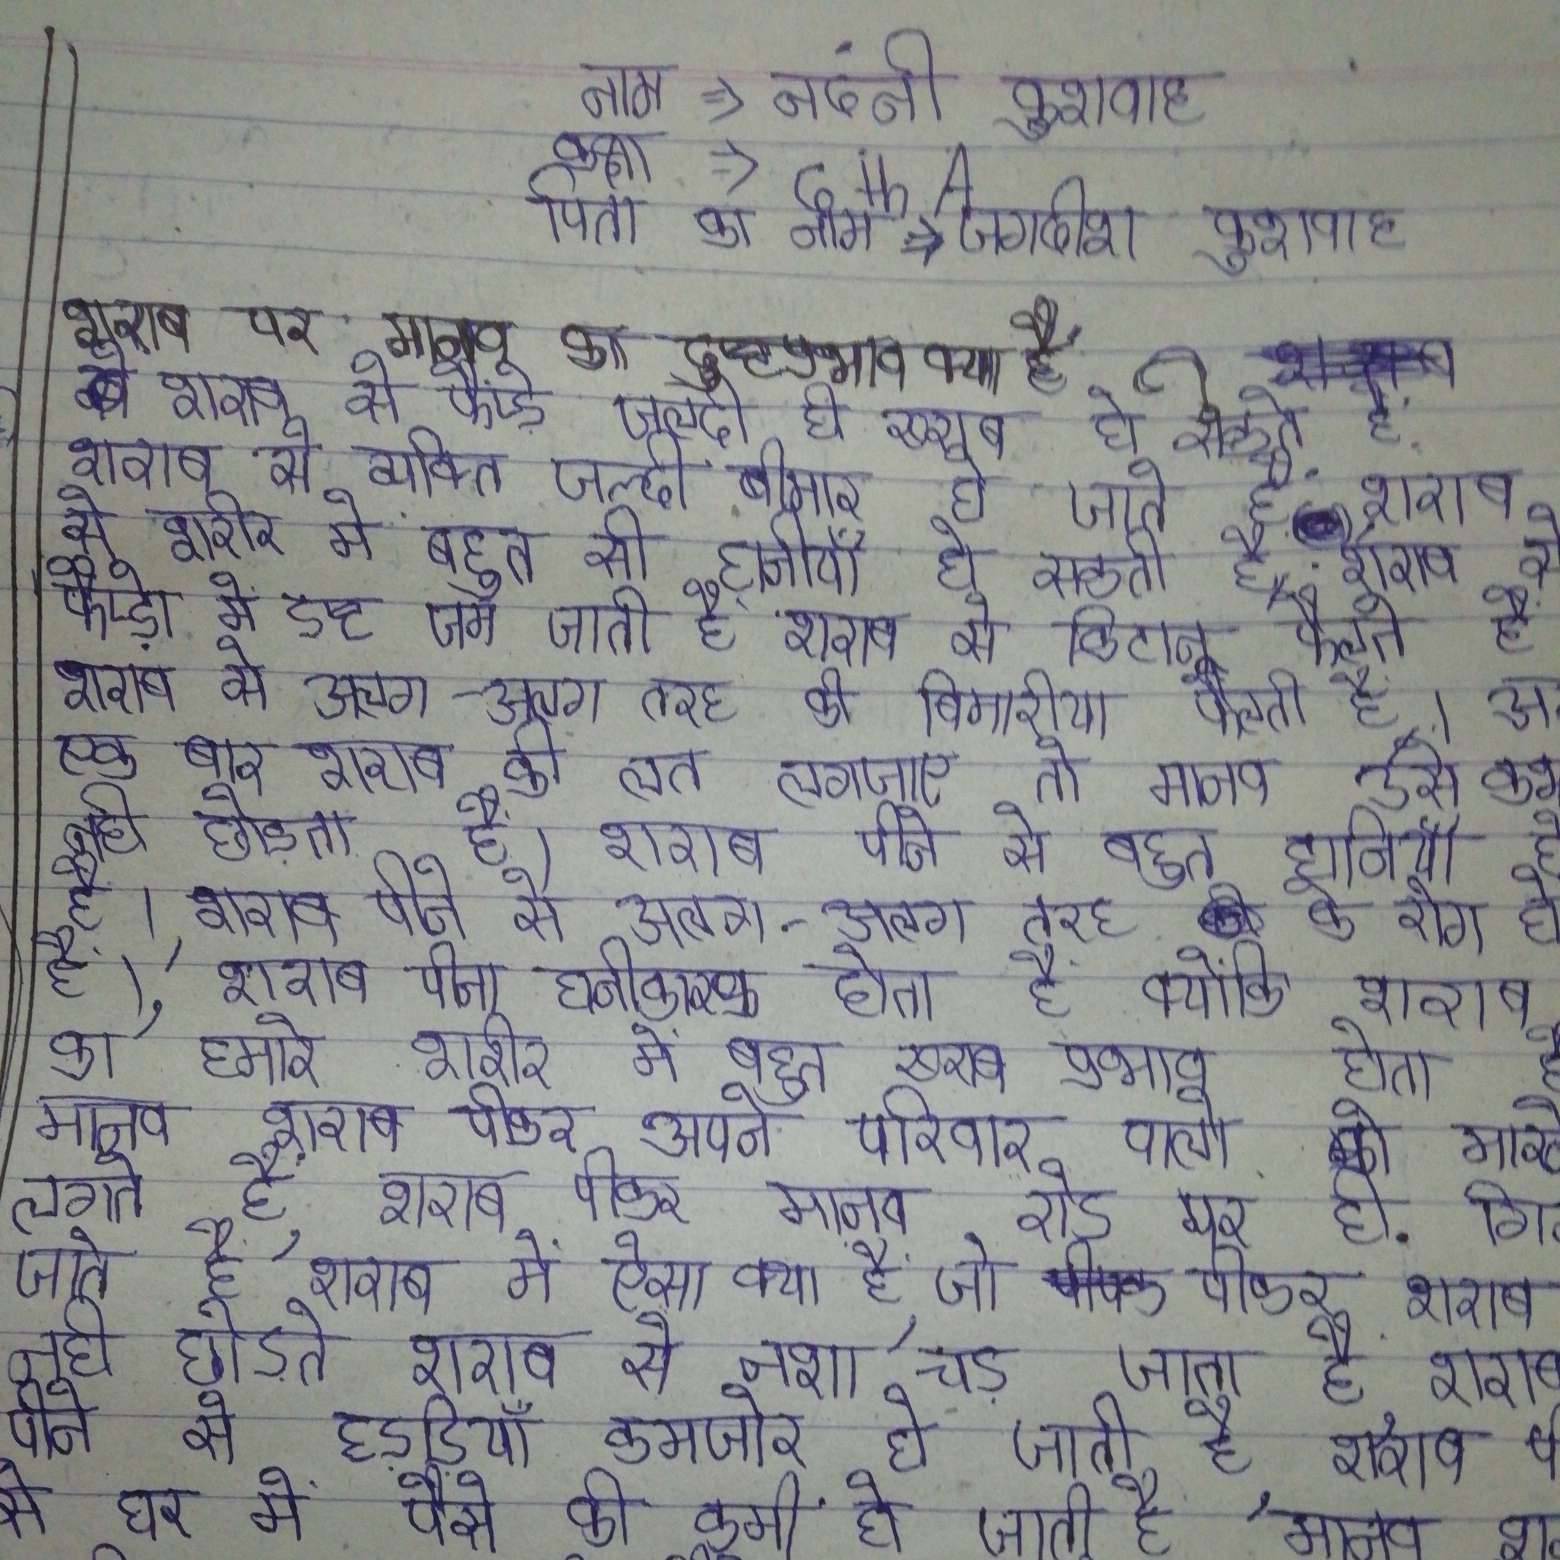 नाम ⇒ नदंनी कुशवाह
कक्षा ⇒ 6th A
पिता का नाम ⇒ जगदीश कुशवाह
शराब पर मानव का दुष्टप्रभाव क्या है
शराब से फेंफड़े जल्दी ही खराब हो सकते हैं.
शराब से व्यक्ति जल्दी बीमार हो जाते हैं. शराब
से शरीर में बहुत सी हानीयाँ हो सकती हैं. शराब से
में जम जाती है शराब से किटानू फैलते हैं
शराब से अलग-अलग तरह की बिमारीया फैलती हैं।
एक बार शराब की लत लगजाए तो मानव उसे
नही छोड़ता हैं। शराब पीने से बहुत हानियाँ
है। शराब पीने से अलग-अलग तरह के रोग
हैं।, शराब पीना हानीकारक होता हैं क्योंकि शराब
का हमारे शरीर में बहुत खराब प्रभाव होता
मानव शराब पीकर अपने परिवार वालो को
लगते हैं, शराब पीकर मानव रोड पर ही.
जाते हैं, शराब में ऐसा क्या हैं जो पीकर शराब
नही छोड़ते शराब से नशा चड़ जाता हैं. शराब
पीने से हड्डियाँ कमजोर हो जाती है शराब
से घर में पैसे की कमी हो जाती है, मानव